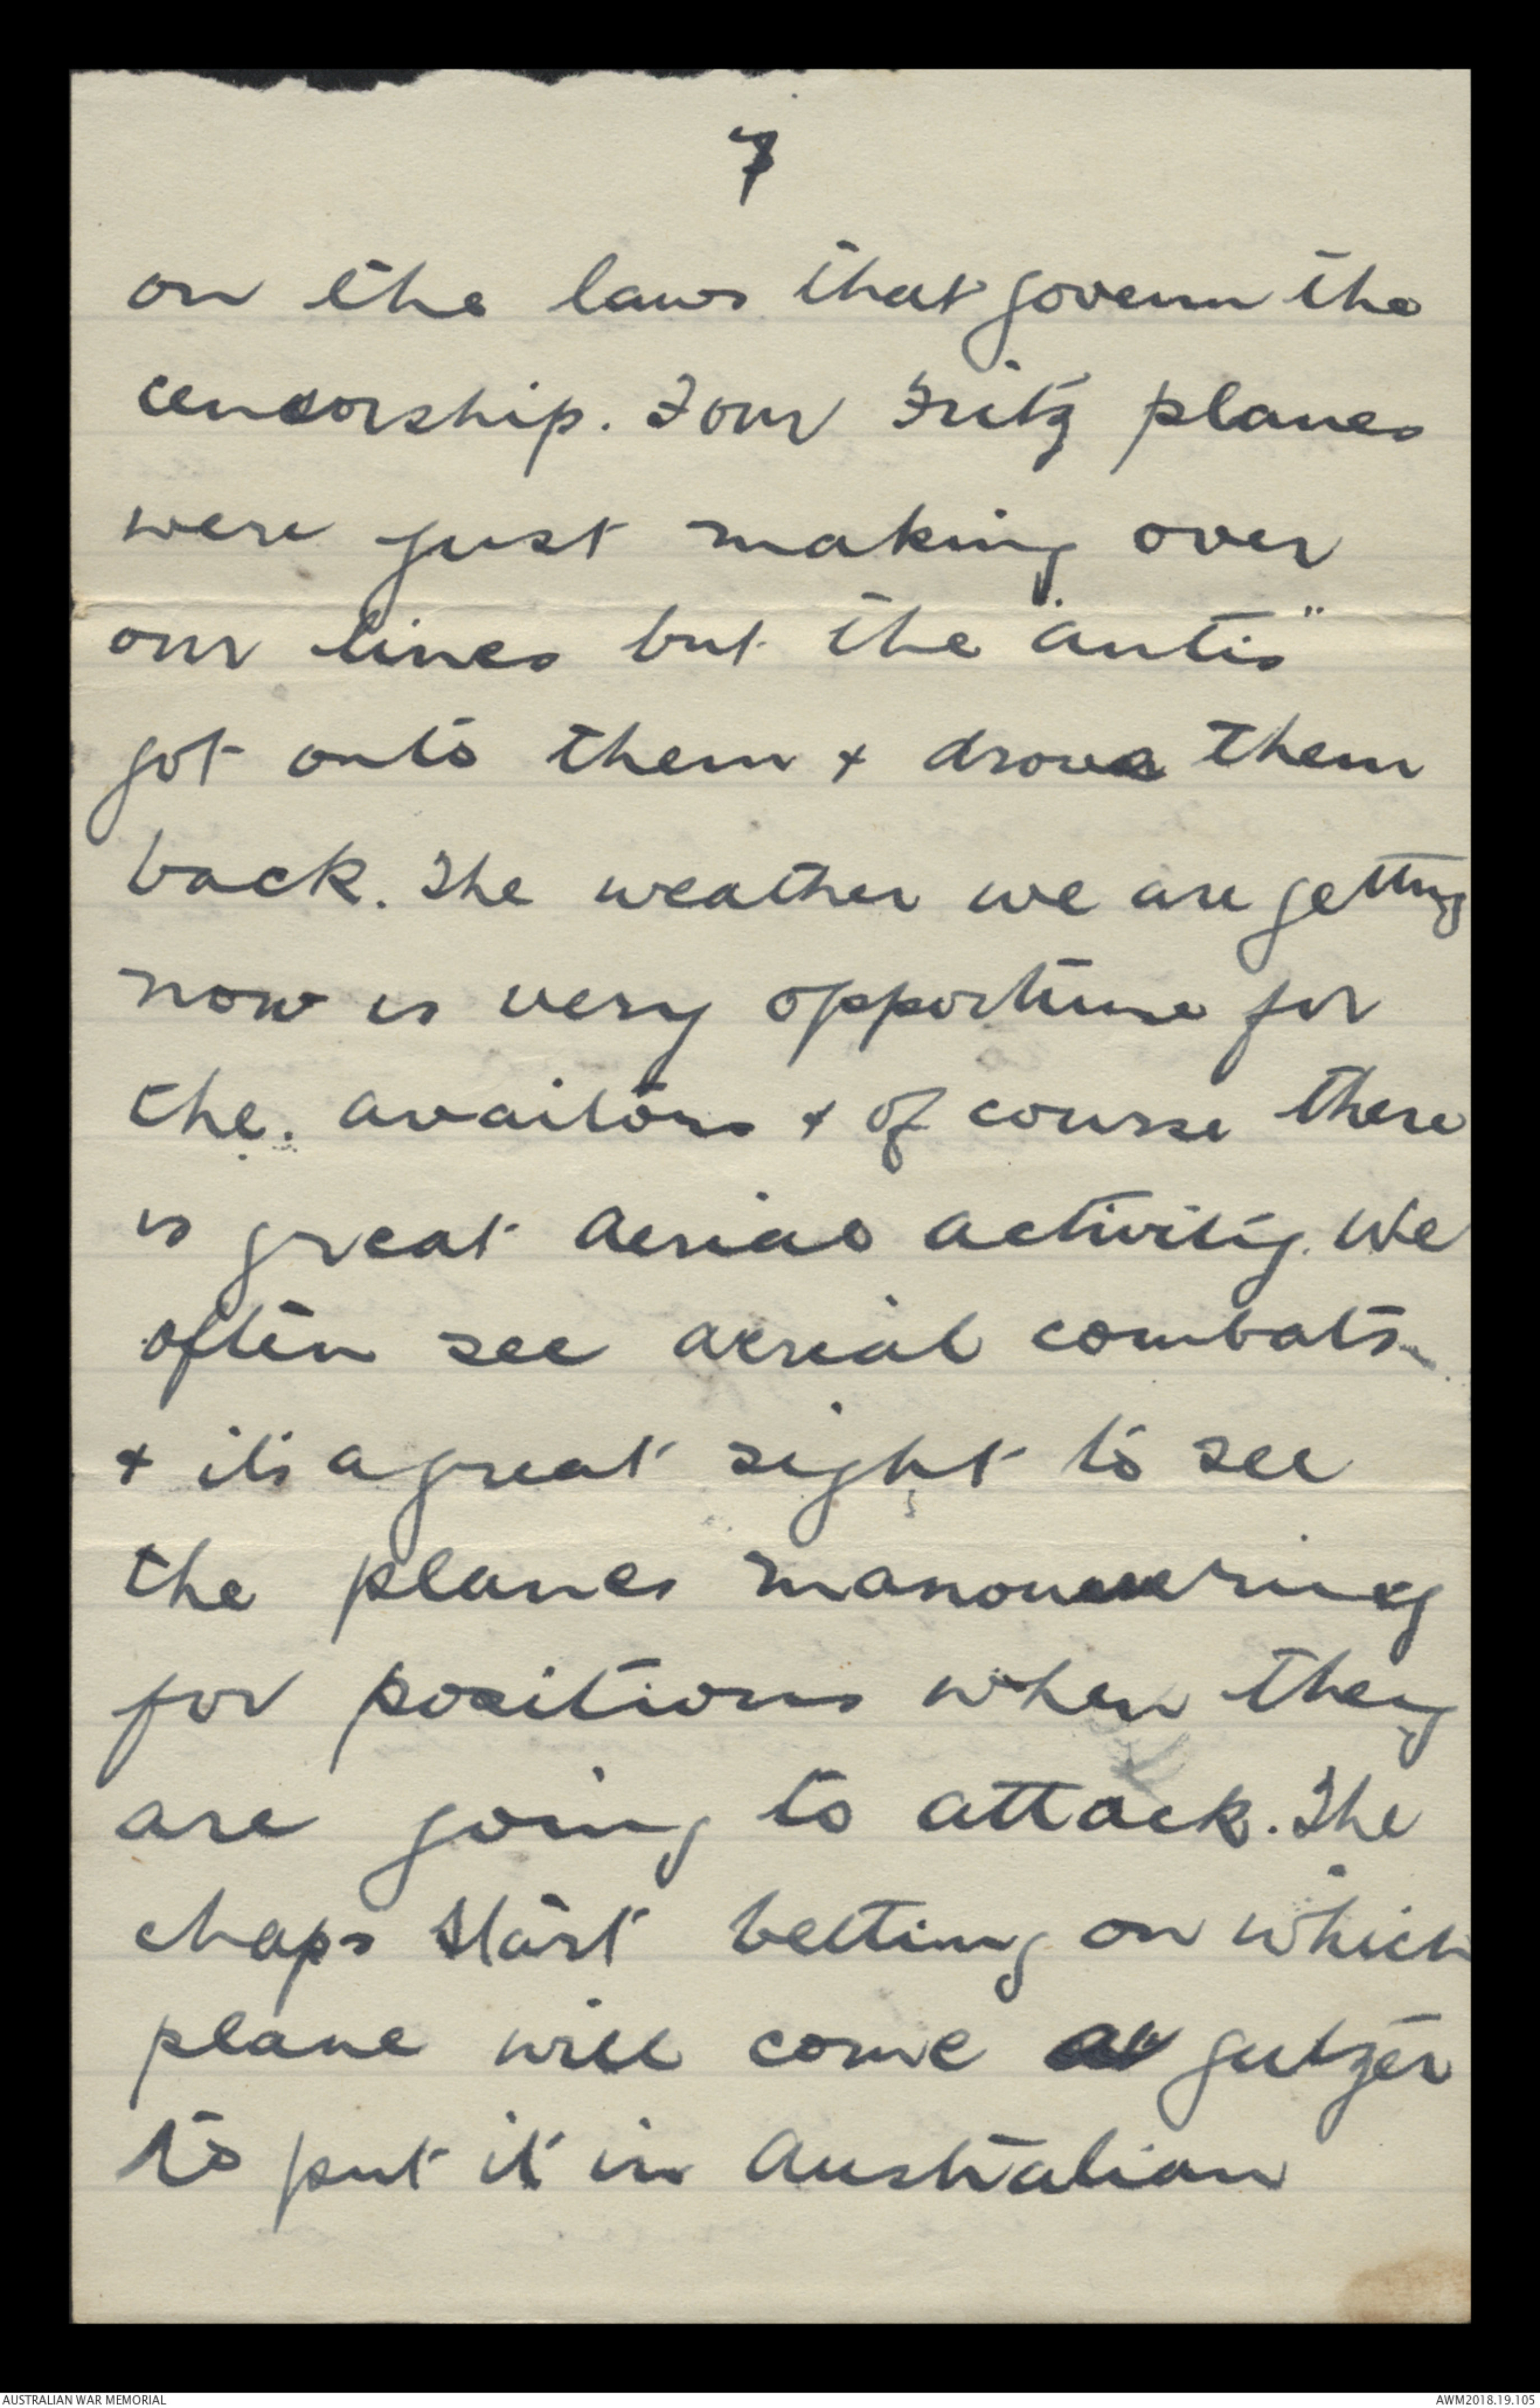 7
on the laws that govern the
censorship. Four Fritz planes
were just making over
our lines but the "antis"
got onto them + drove them
back. The weather we are getting
now is very opportune for
the. avaitors + of course there
is great aerial activity. We
often see aerial combats
+ its a great sight to see
the planes manouvering
for positions when they
are going to attack. The
chaps start betting on which
plane will come a gutzer
to put it in Australian
AUSTRALIAN WAR MEMORIAL
AWM2018.19.105